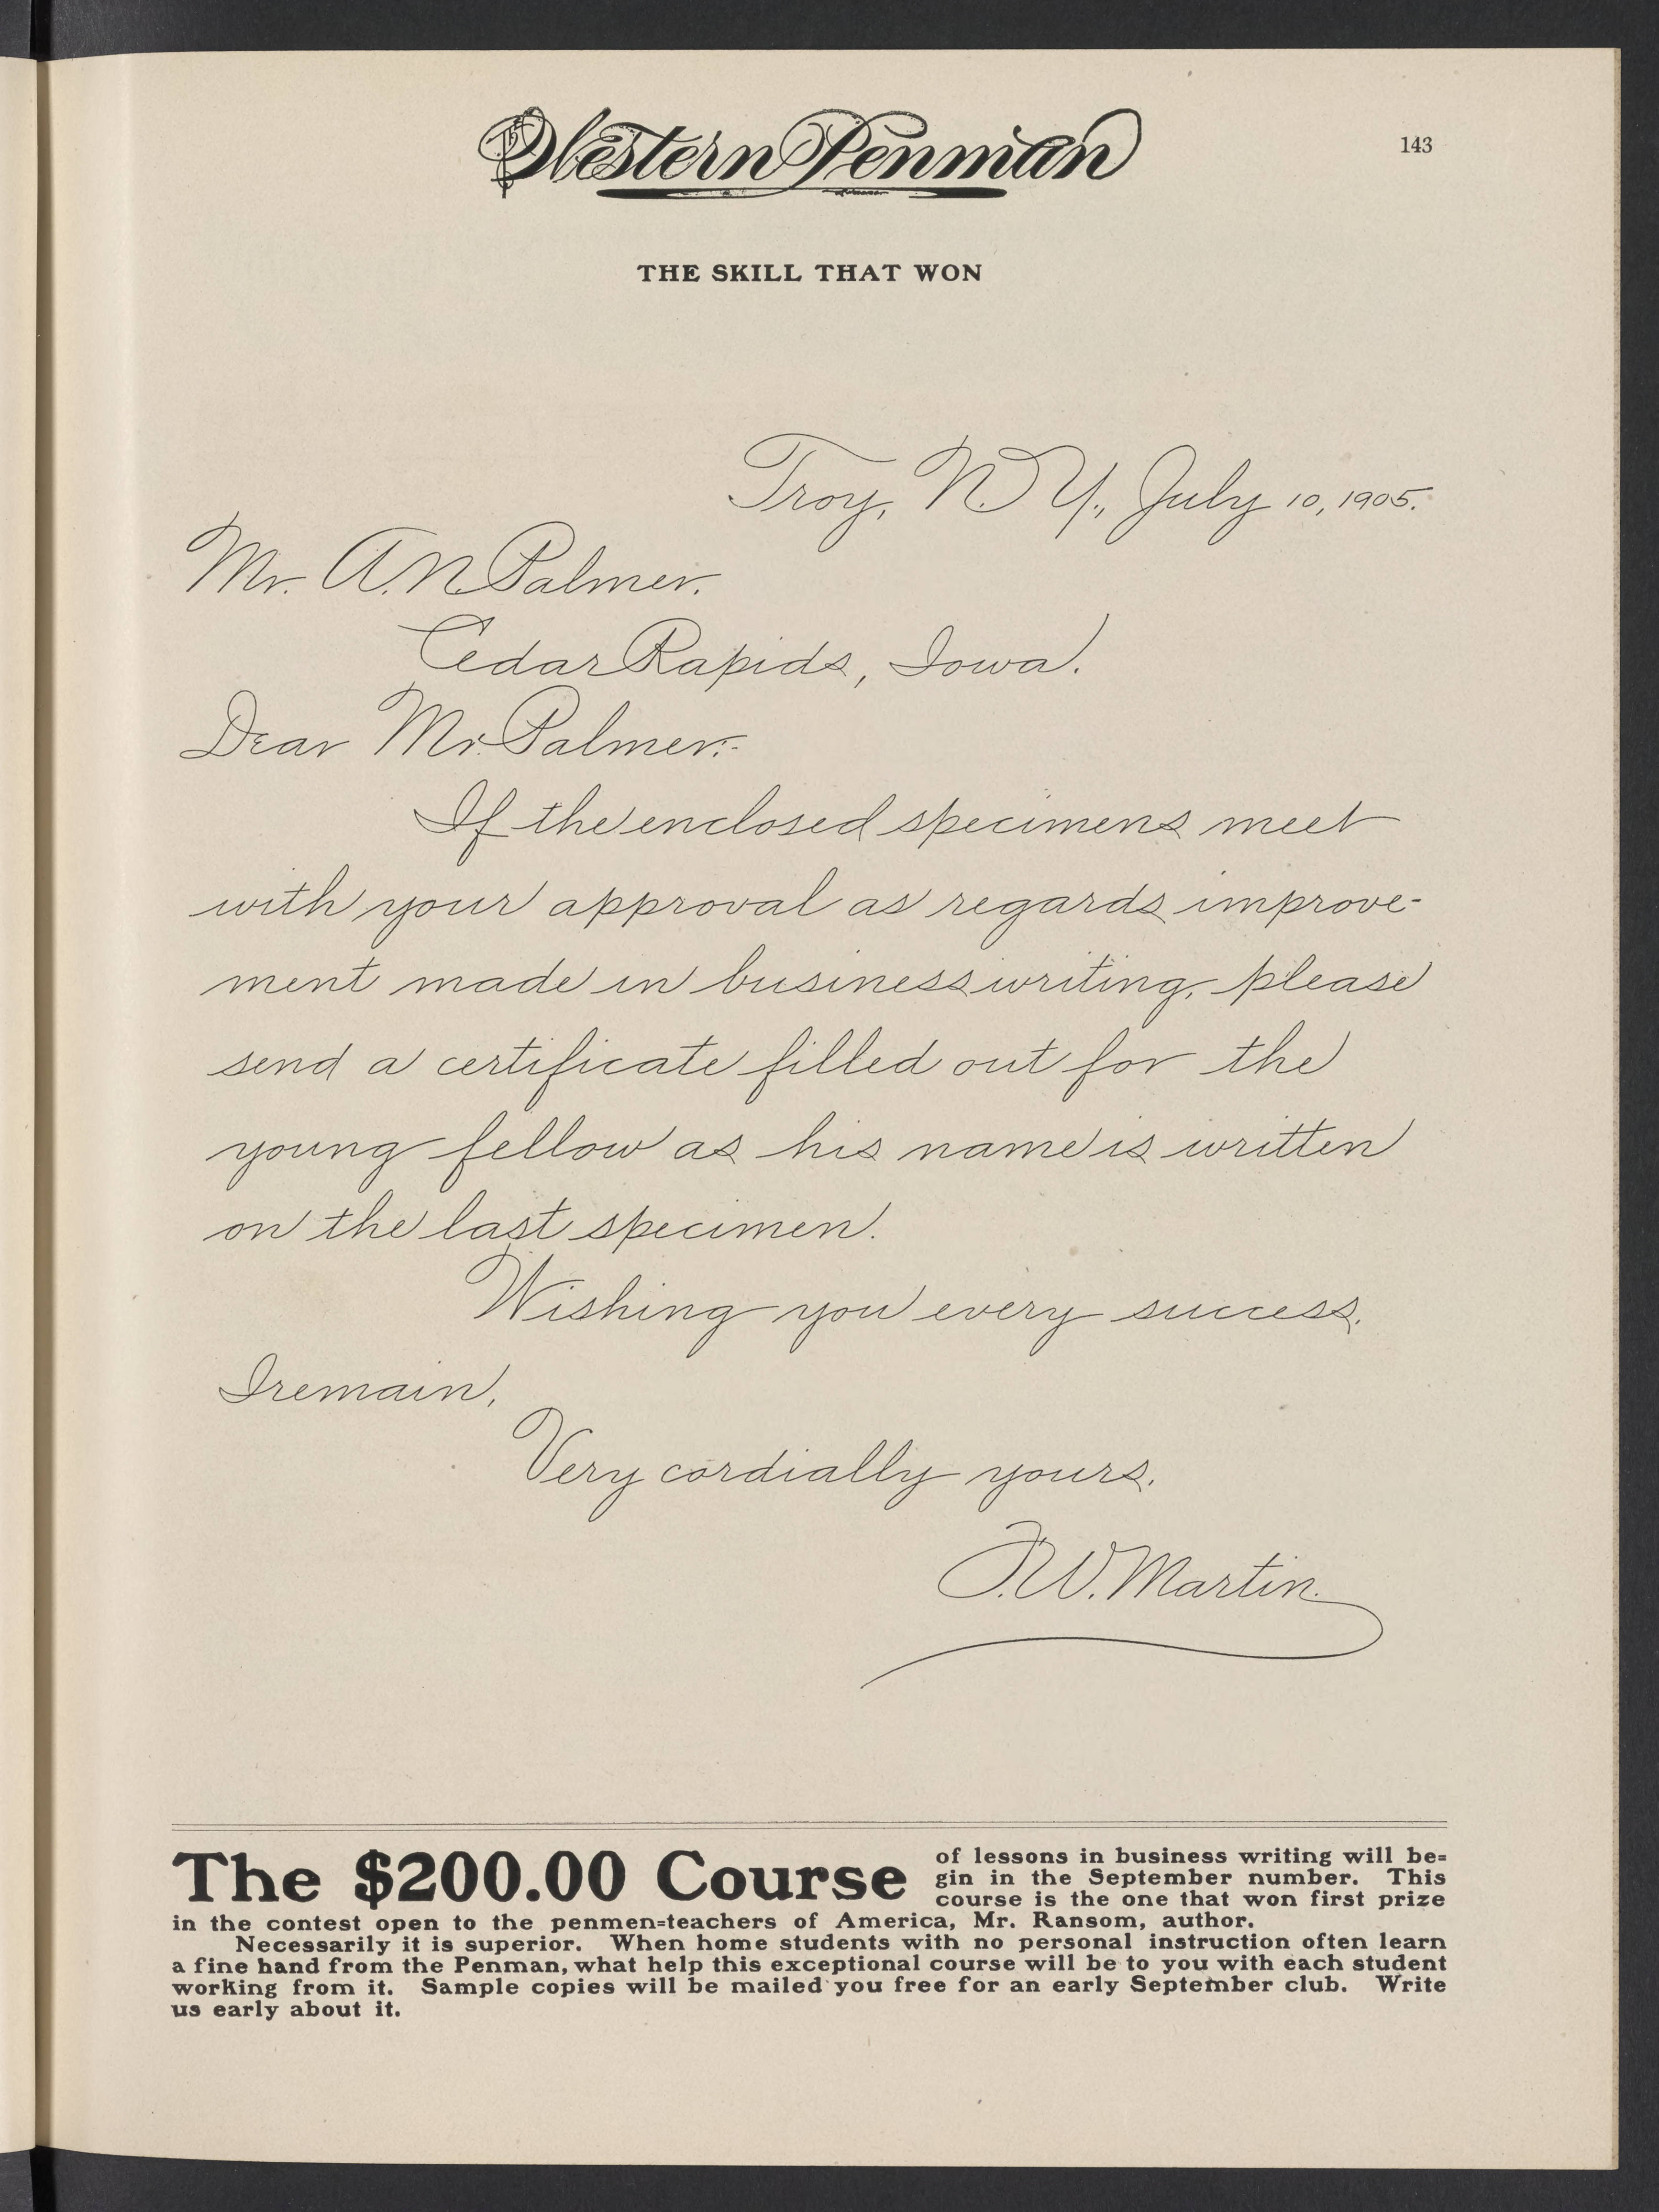 The Western Penman
143
THE SKILL THAT WON
Troy, N. Y., July 10, 1905.
Mr. A. N. Palmer.
Cedar Rapids, Iowa.
Dear Mr. Palmer:-
If the enclosed specimens meet
with your approval as regards improve-
ment made in business writing, please
send a certificate filled out for the
young fellow as his name is written
on the last specimen.
Wishing you every success,
I remain,
Very cordially yours,
F. W. Martin.
The $200.00 Course of lessons in business writing will be=
gin in the September number. This
course is the one that won first prize
in the contest open to the penmen=teachers of America, Mr. Ransom, author.
Necessarily it is superior. When home students with no personal instruction often learn
a fine hand from the Penman, what help this exceptional course will be to you with each student
working from it. Sample copies will be mailed you free for an early September club. Write
us early about it.